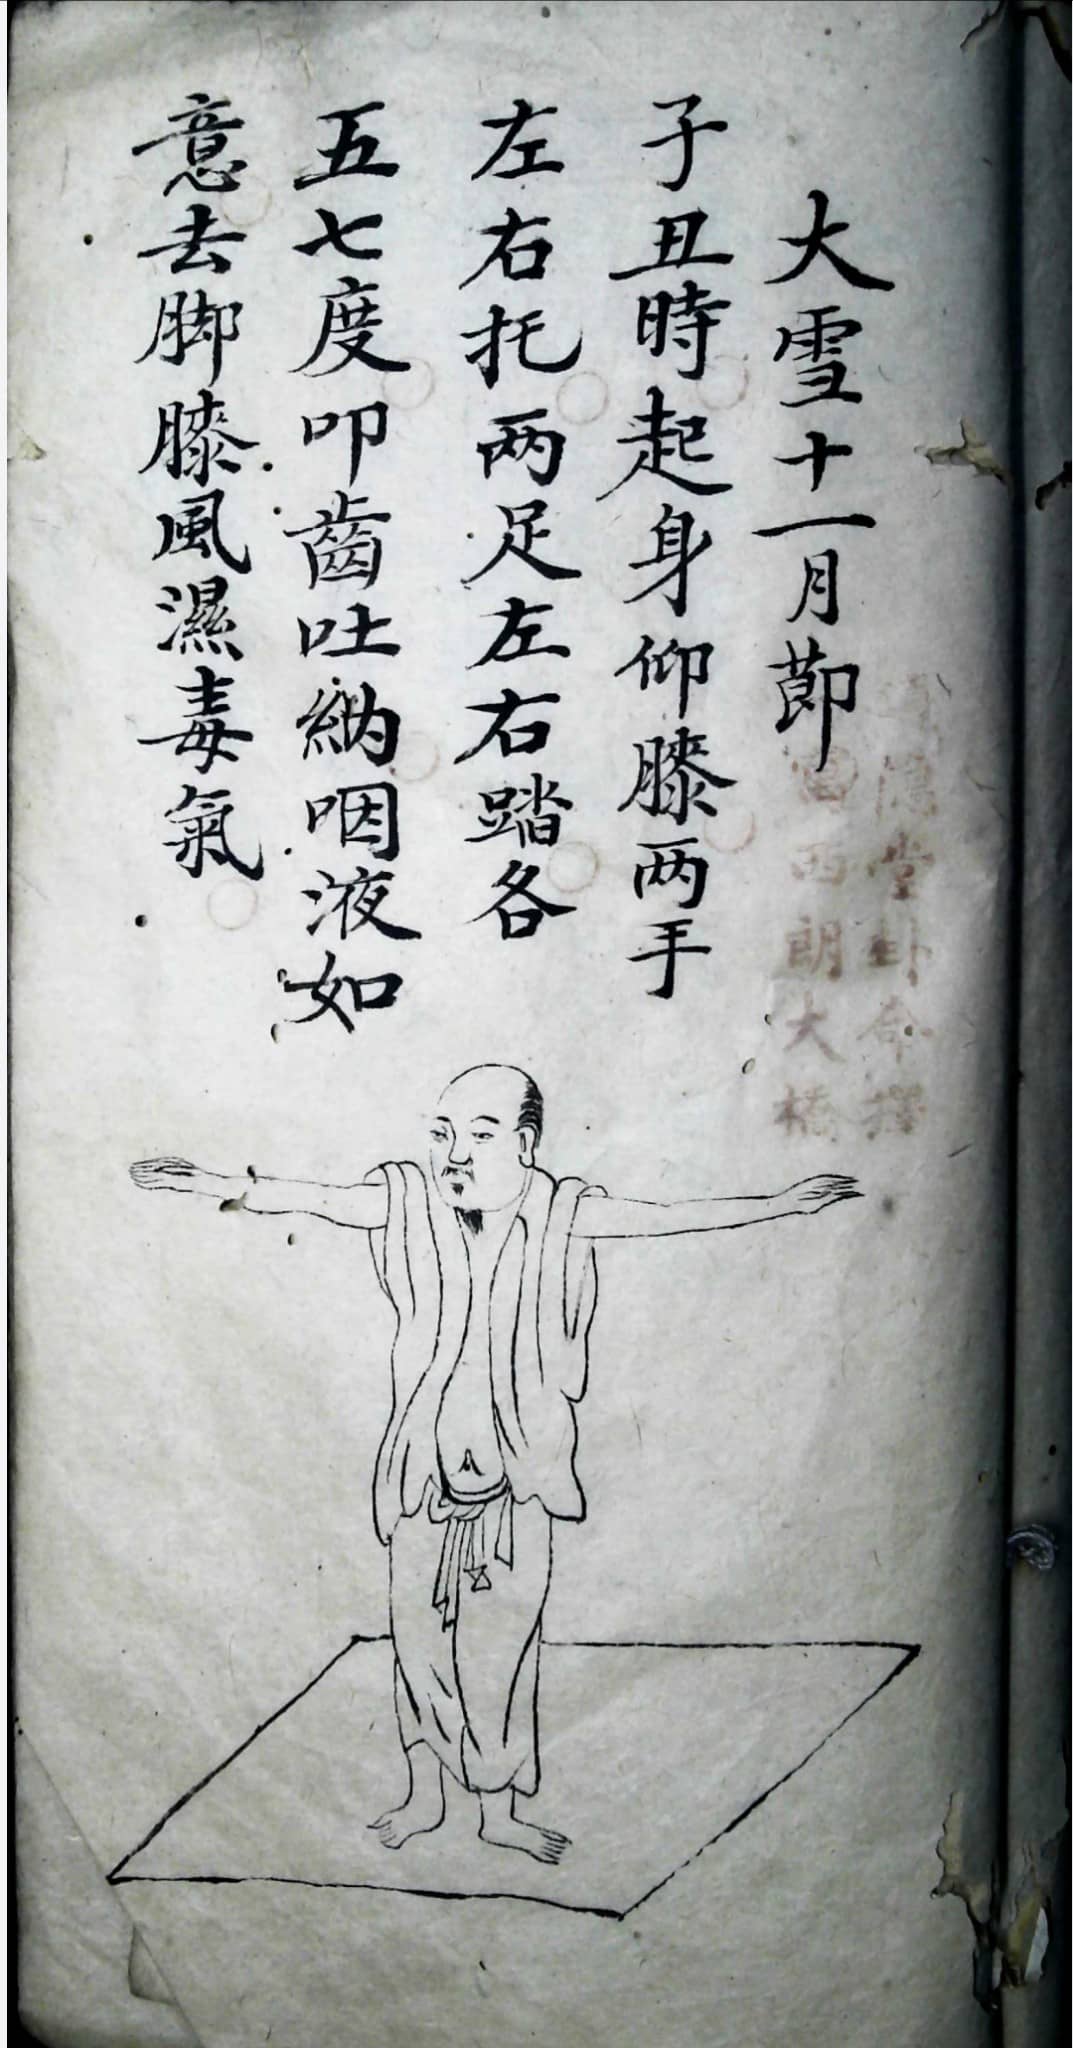 大雪十一月節
子丑時起身仰膝两手
左右托两足左右踏各
五七度叩齒吐納咽液如
意去脚膝風濕毒氣
堂卦命擇
西朗大橋